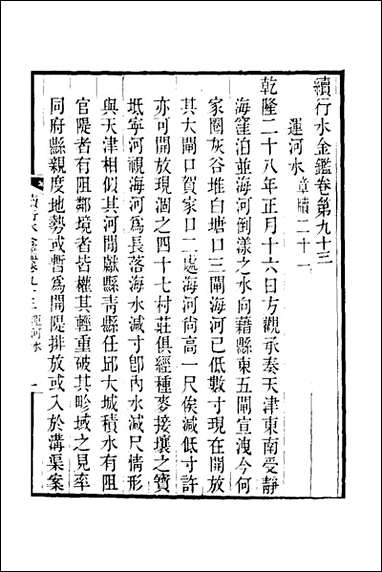 續行水金鑑卷第九十三
運河水章牘二十一
乾隆二十八年正月十六日方觀承奏天津東南受靜
海窪泊並海河倒漾之水向藉縣東五閘宣洩今何
家圈灰谷堆白塘口三閘海河已低數寸現在開放
其大閘口賀家口二處海河尚高一尺俟減低寸許
亦可開放現涸之四十七村莊俱經種麥接壤之寶
坻寧河視海河爲長落海水減寸卽內水減尺情形
與天津相似其河間獻縣靑縣任邱大城積水有阻
官隄者有阻鄰境者皆權其輕重破其畛域之見率
同府縣親度地勢或暫爲開隄排放或入於溝渠案
續行水金鑑卷九十三 運河水 一